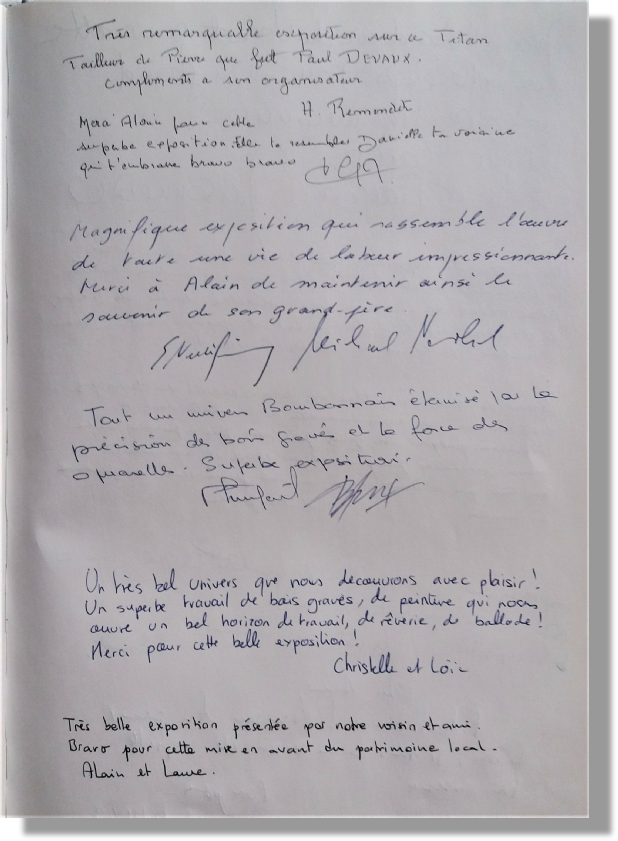 Très remarquable exposition sur ce Titan
Tailleur de Pierre que fut Paul DEVAUX.
compliments a son organisateur
H. Remondet
Merci Alain pour cette
superbe exposition. Elle le ressemble Danielle ta voisine
qui t'embrasse bravo bravo
Magnifique exposition qui rassemble l'œuvre
de toute une vie de labeur impressionnante.
Merci à Alain de maintenir ainsi le
souvenir de son grand-père
Tout un univers Bourbonnais par la
précision des bois gravés et la force des
aquarelles. Superbe exposition.
Un très bel univers que nous découvrons avec plaisir !
Un superbe travail de bois gravés, de peinture qui nous
œuvre un bel horizon de travail, de rêverie, de ballade !
Merci pour cette belle exposition !
Christelle et Loïc
Très belle exposition présentée par notre voisin et ami.
Bravo pour cette mise en avant du patrimoine local.
Alain et Laure.